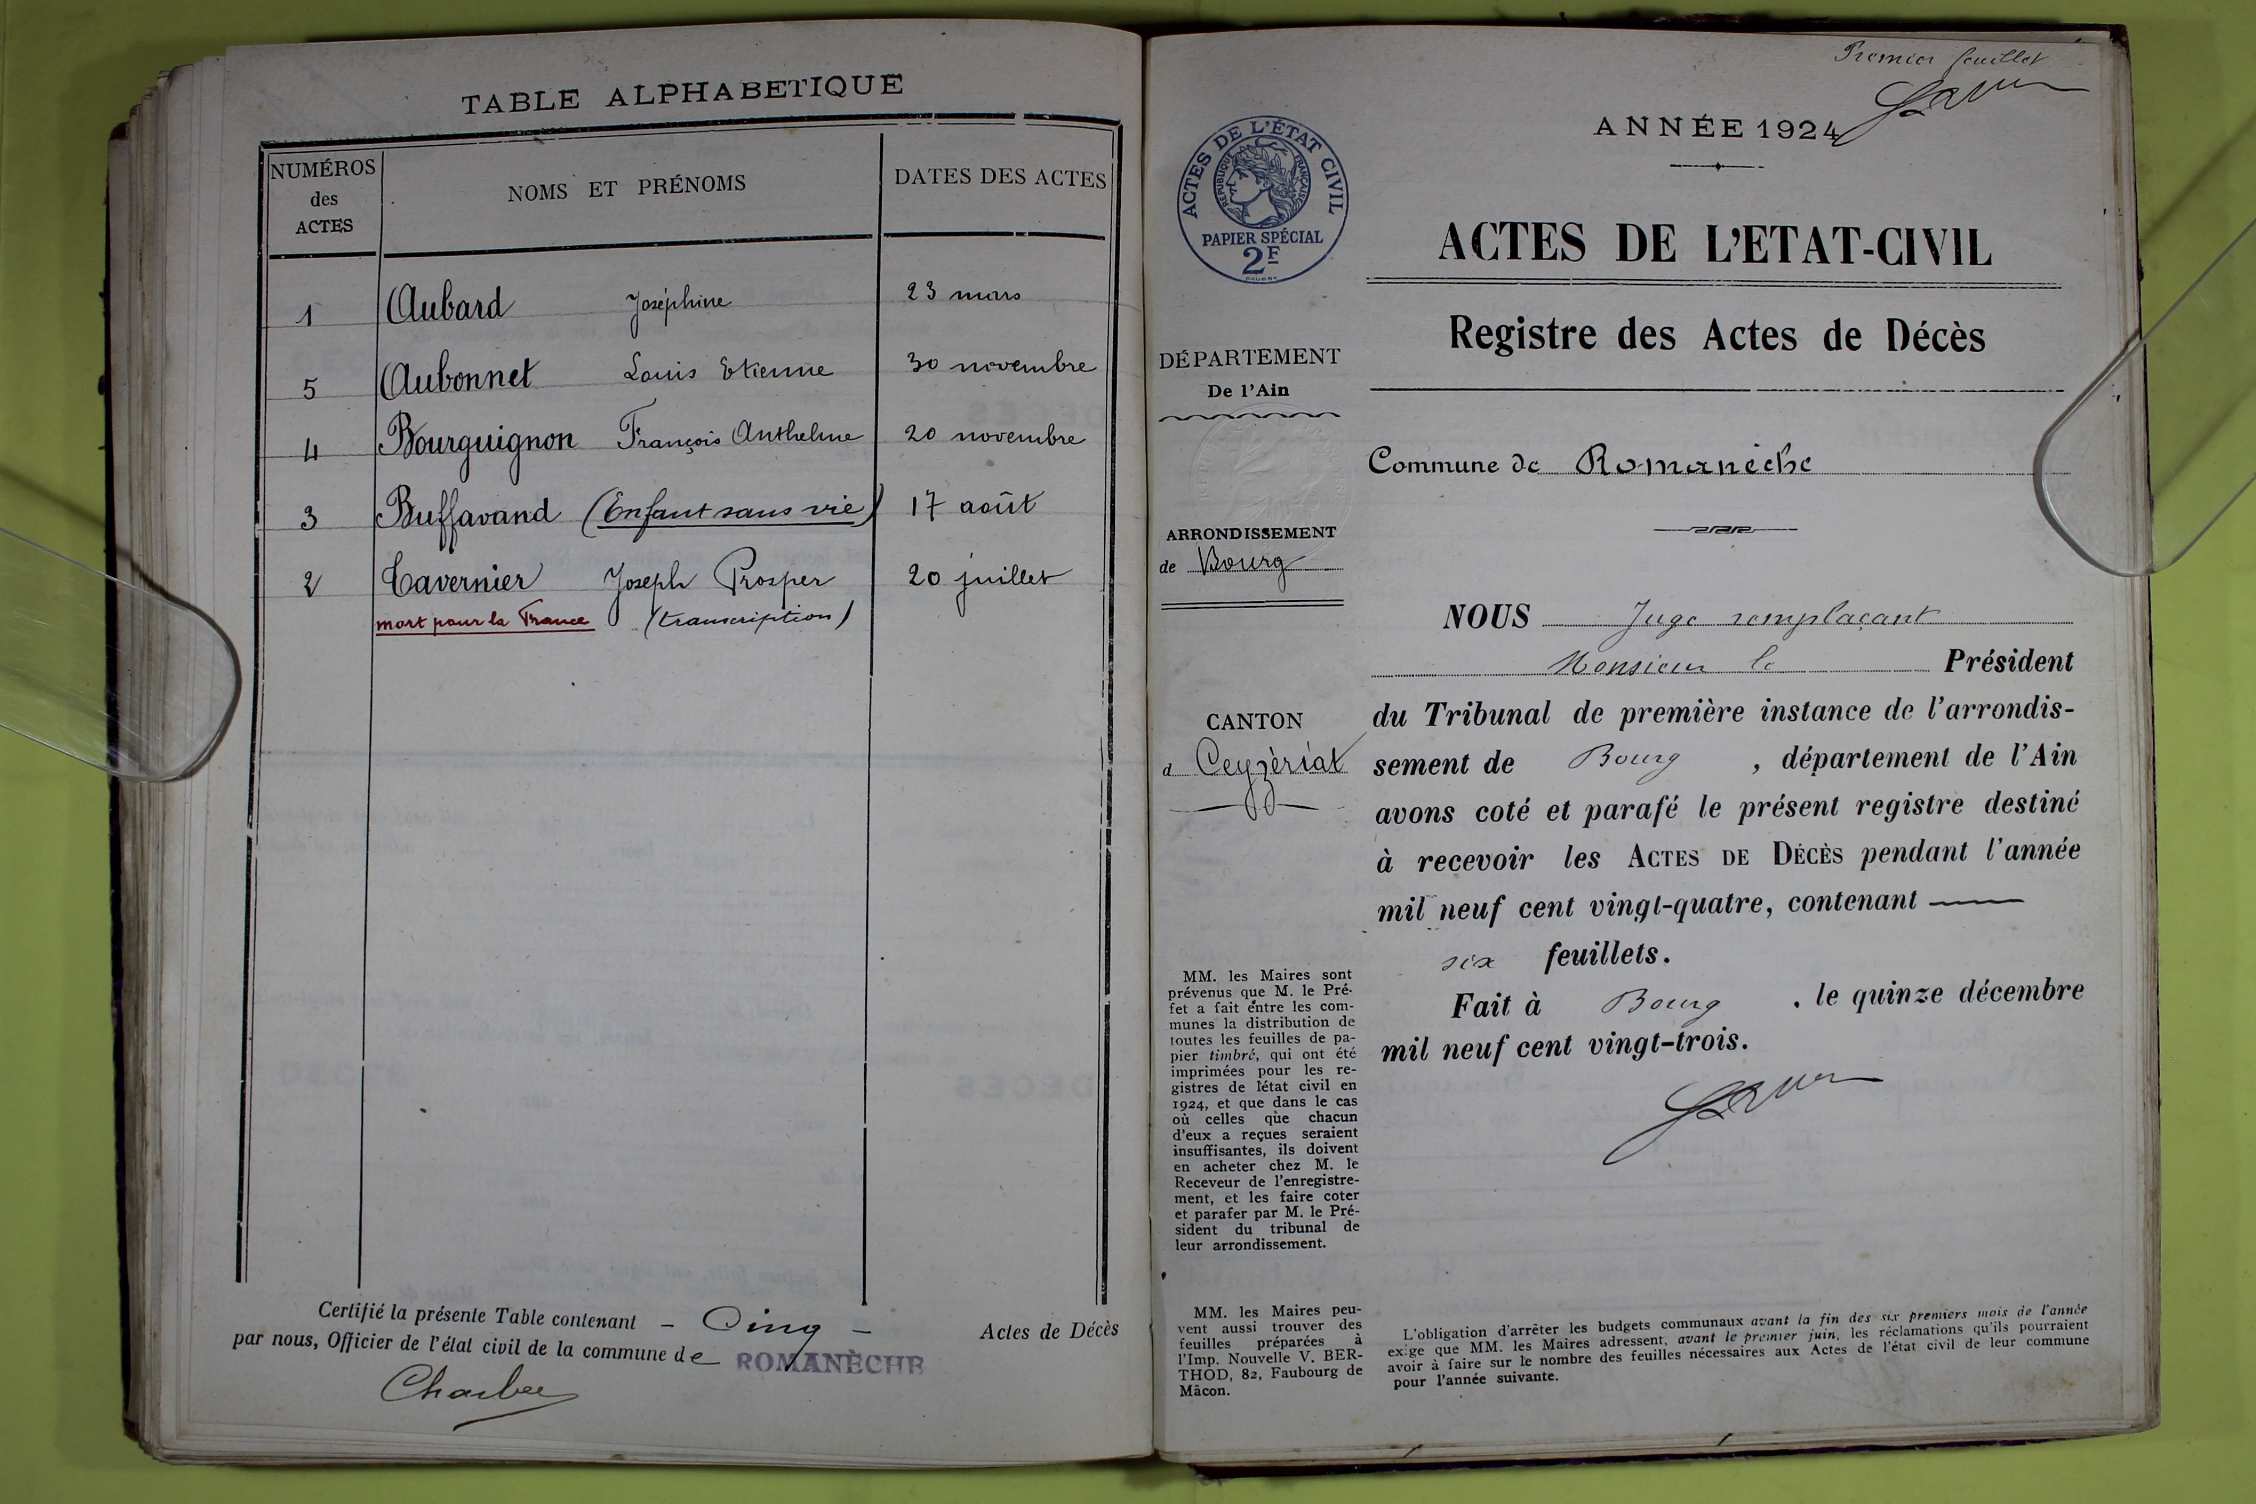 TABLE ALPHABETIQUE
NUMÉROS des ACTES
NOMS ET PRÉNOMS
DATES DES ACTES
1 Aubard Joséphine 23 mars
5 Aubonnet Louis Etienne 30 novembre
4 Bourguignon François Anthelme 20 novembre
3 Buffavand (Enfant sans vie) 17 août
2 Tavernier Joseph Prosper 20 juillet
mort pour la France (transcription)
Certifié la présente Table contenant - Cinq - Actes de Décès
par nous, Officier de l'état civil de la commune de ROMANÈCHE
Premier feuillet
ANNÉE 1924
ACTES DE L'ÉTAT CIVIL
RÉPUBLIQUE FRANÇAISE
PAPIER SPÉCIAL
2F
ACTES DE L'ETAT-CIVIL
Registre des Actes de Décès
DÉPARTEMENT
De l'Ain
Commune de Romanèche
ARRONDISSEMENT
de Bourg
CANTON
d Ceyzériat
NOUS Juge remplaçant
Monsieur le Président
du Tribunal de première instance de l'arrondis-
sement de Bourg , département de l'Ain
avons coté et parafé le présent registre destiné
à recevoir les ACTES DE DÉCÈS pendant l'année
mil neuf cent vingt-quatre, contenant
six feuillets.
Fait à Bourg , le quinze décembre
mil neuf cent vingt-trois.
MM. les Maires sont
prévenus que M. le Pré-
fet a fait entre les com-
munes la distribution de
toutes les feuilles de pa-
pier timbré, qui ont été
imprimées pour les re-
gistres de l'état civil en
1924, et que dans le cas
où celles que chacun
d'eux a reçues seraient
insuffisantes, ils doivent
en acheter chez M. le
Receveur de l'enregistre-
ment, et les faire coter
et parafer par M. le Pré-
sident du tribunal de
leur arrondissement.
MM. les Maires peu-
vent aussi trouver des
feuilles préparées à
l'Imp. Nouvelle V. BER-
THOD, 82, Faubourg de
Mâcon.
L'obligation d'arrêter les budgets communaux avant la fin des six premiers mois de l'année
exige que MM. les Maires adressent, avant le premier juin, les réclamations qu'ils pourraient
avoir à faire sur le nombre des feuilles nécessaires aux Actes de l'état civil de leur commune
pour l'année suivante.